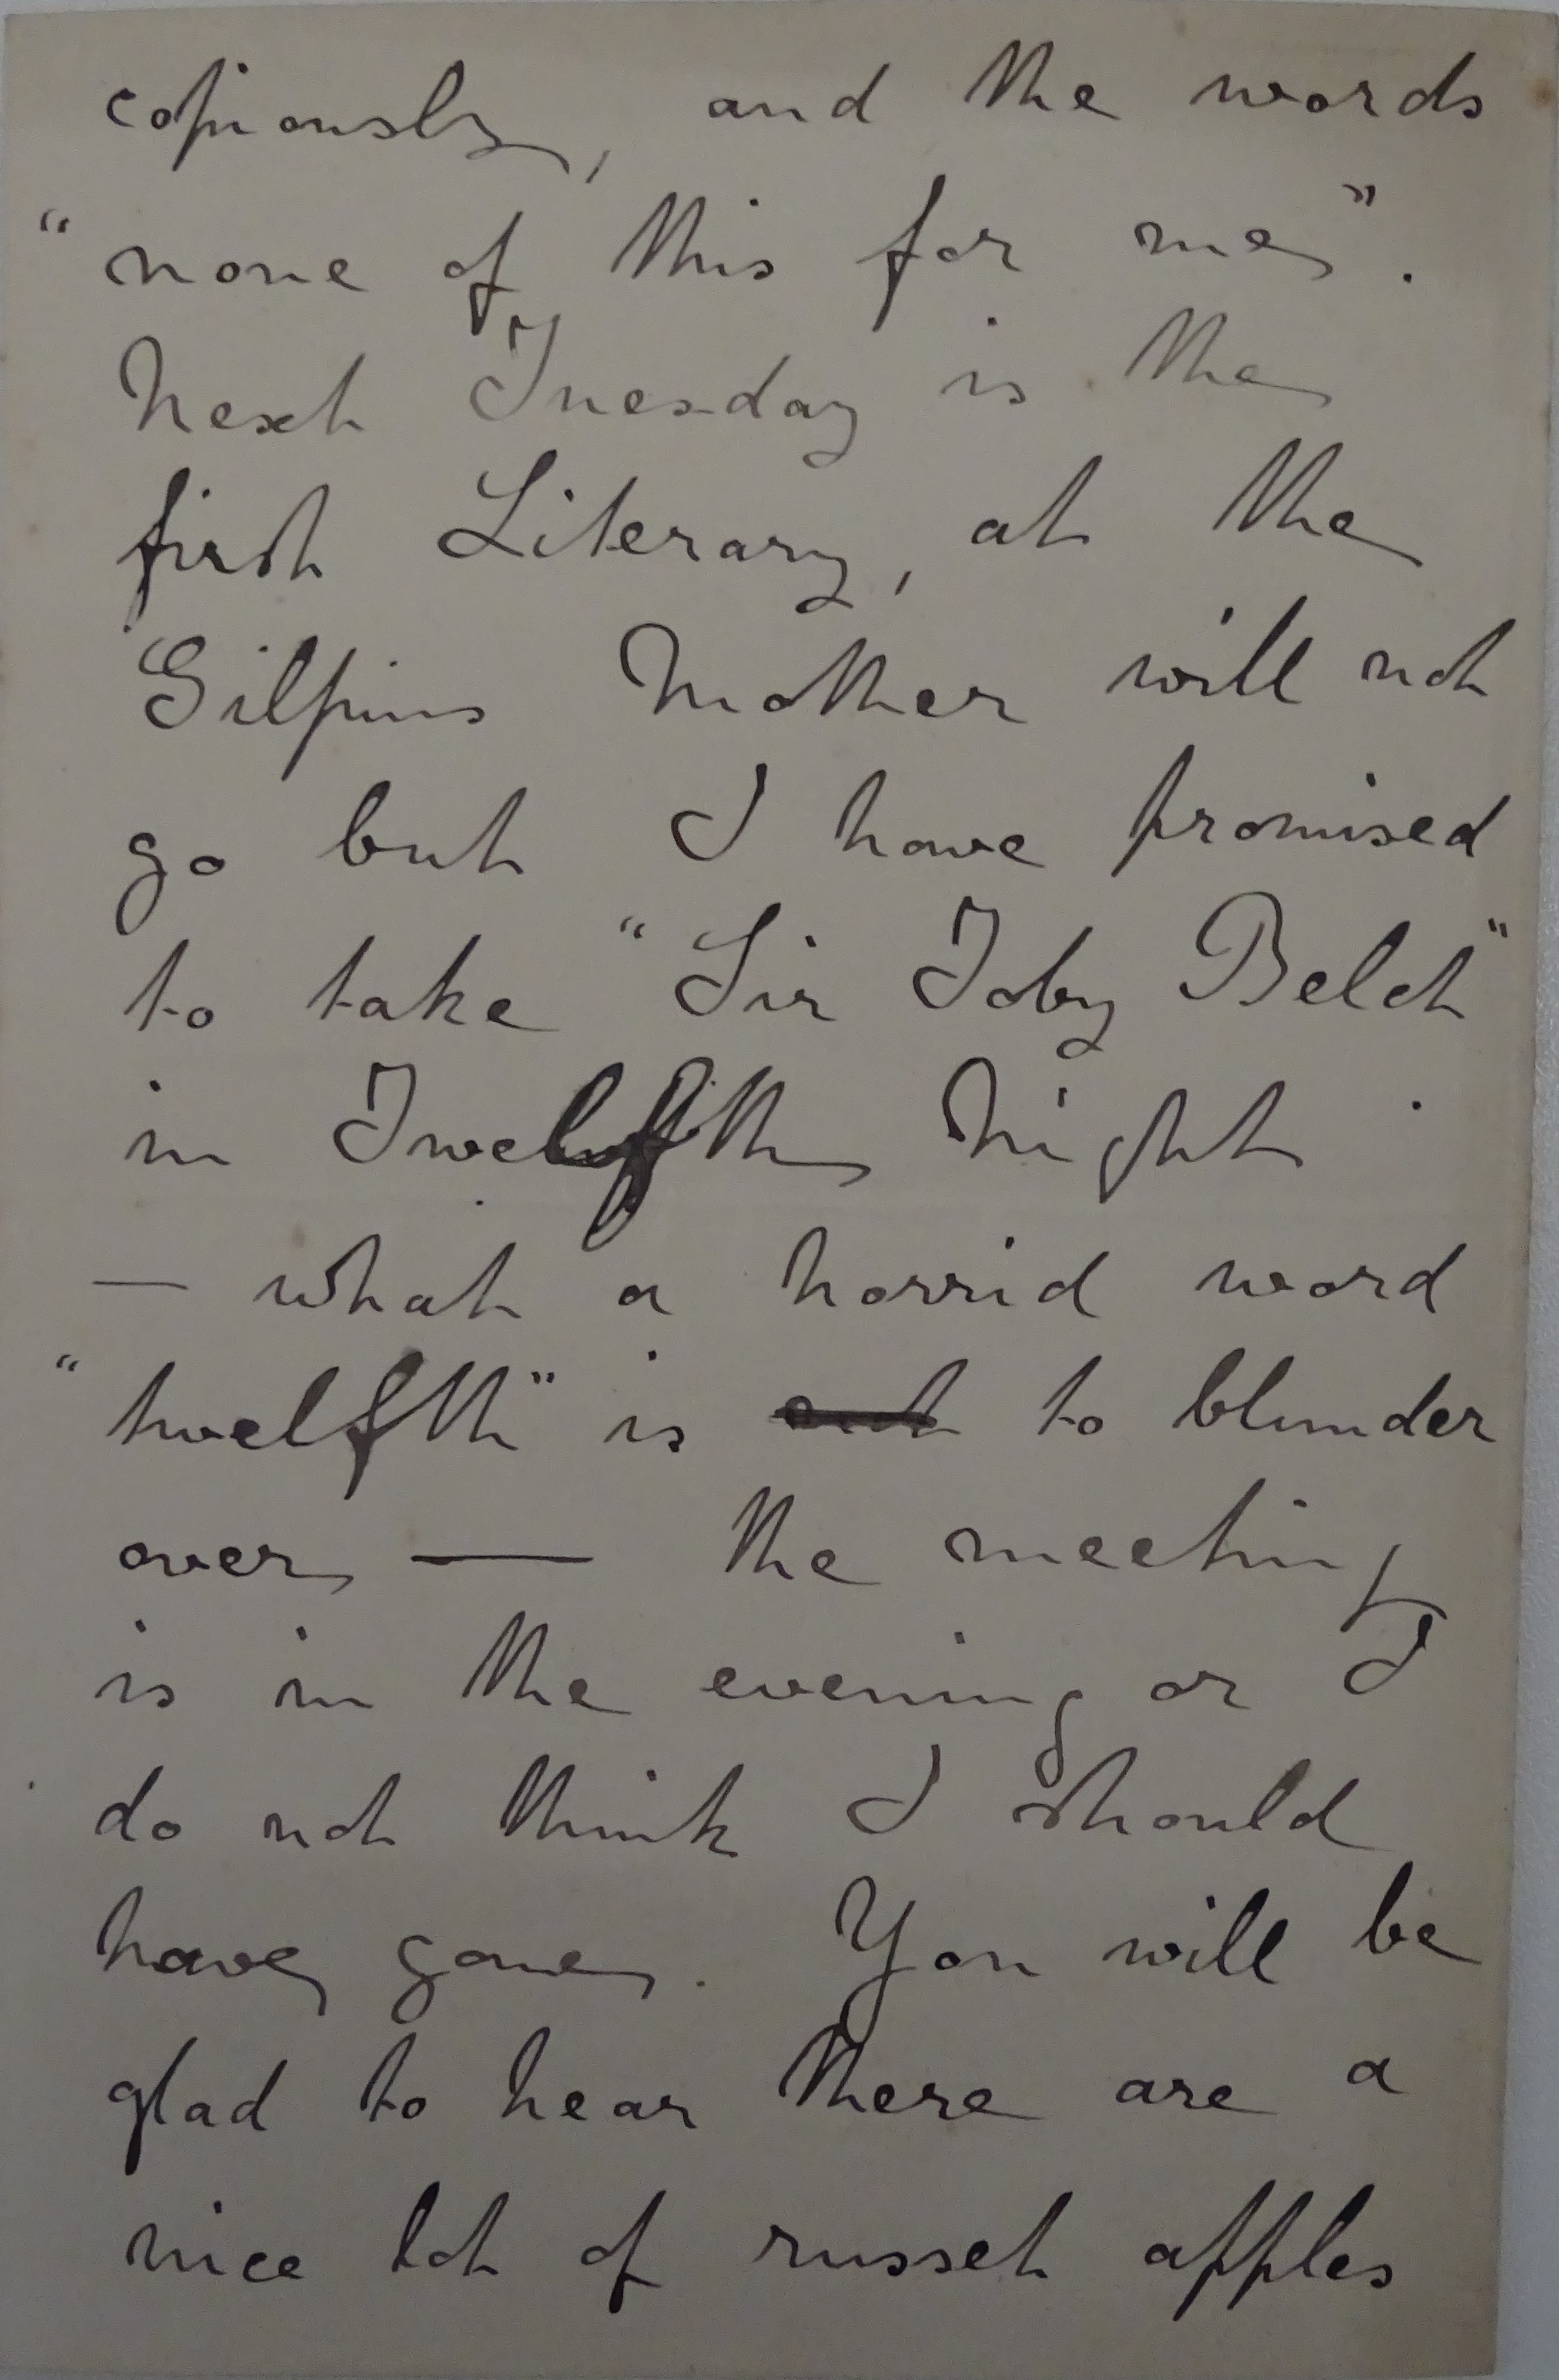 copiously, and the words
"none of this for me".
Next Tuesday is the
first Literary, at the
Gilpins Mother will not
go but I have promised
to take "Sir Toby Belch"
in Twelfth Night
— what a horrid word
"twelfth" is to blunder
over — the meeting
is in the evening or I
do not think I should
have gone. You will be
glad to hear there are a
nice lot of russet apples